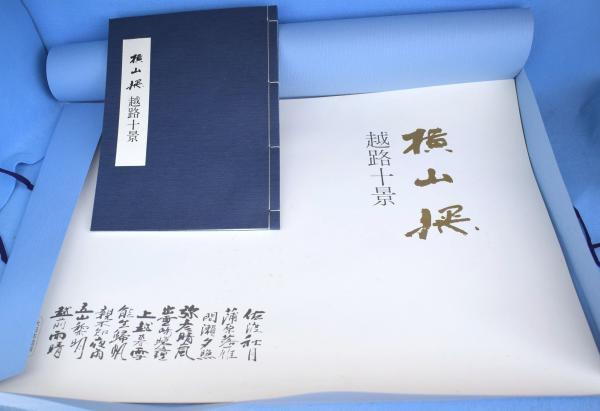 横山操
越路十景
横山操
越路十景
佐渡秋月
蒲原落雁
間瀬夕照
弥彦晴嵐
出雲崎晩鐘
上越暮雪
能生帰帆
親不知夜雨
立山黎明
越前雨晴